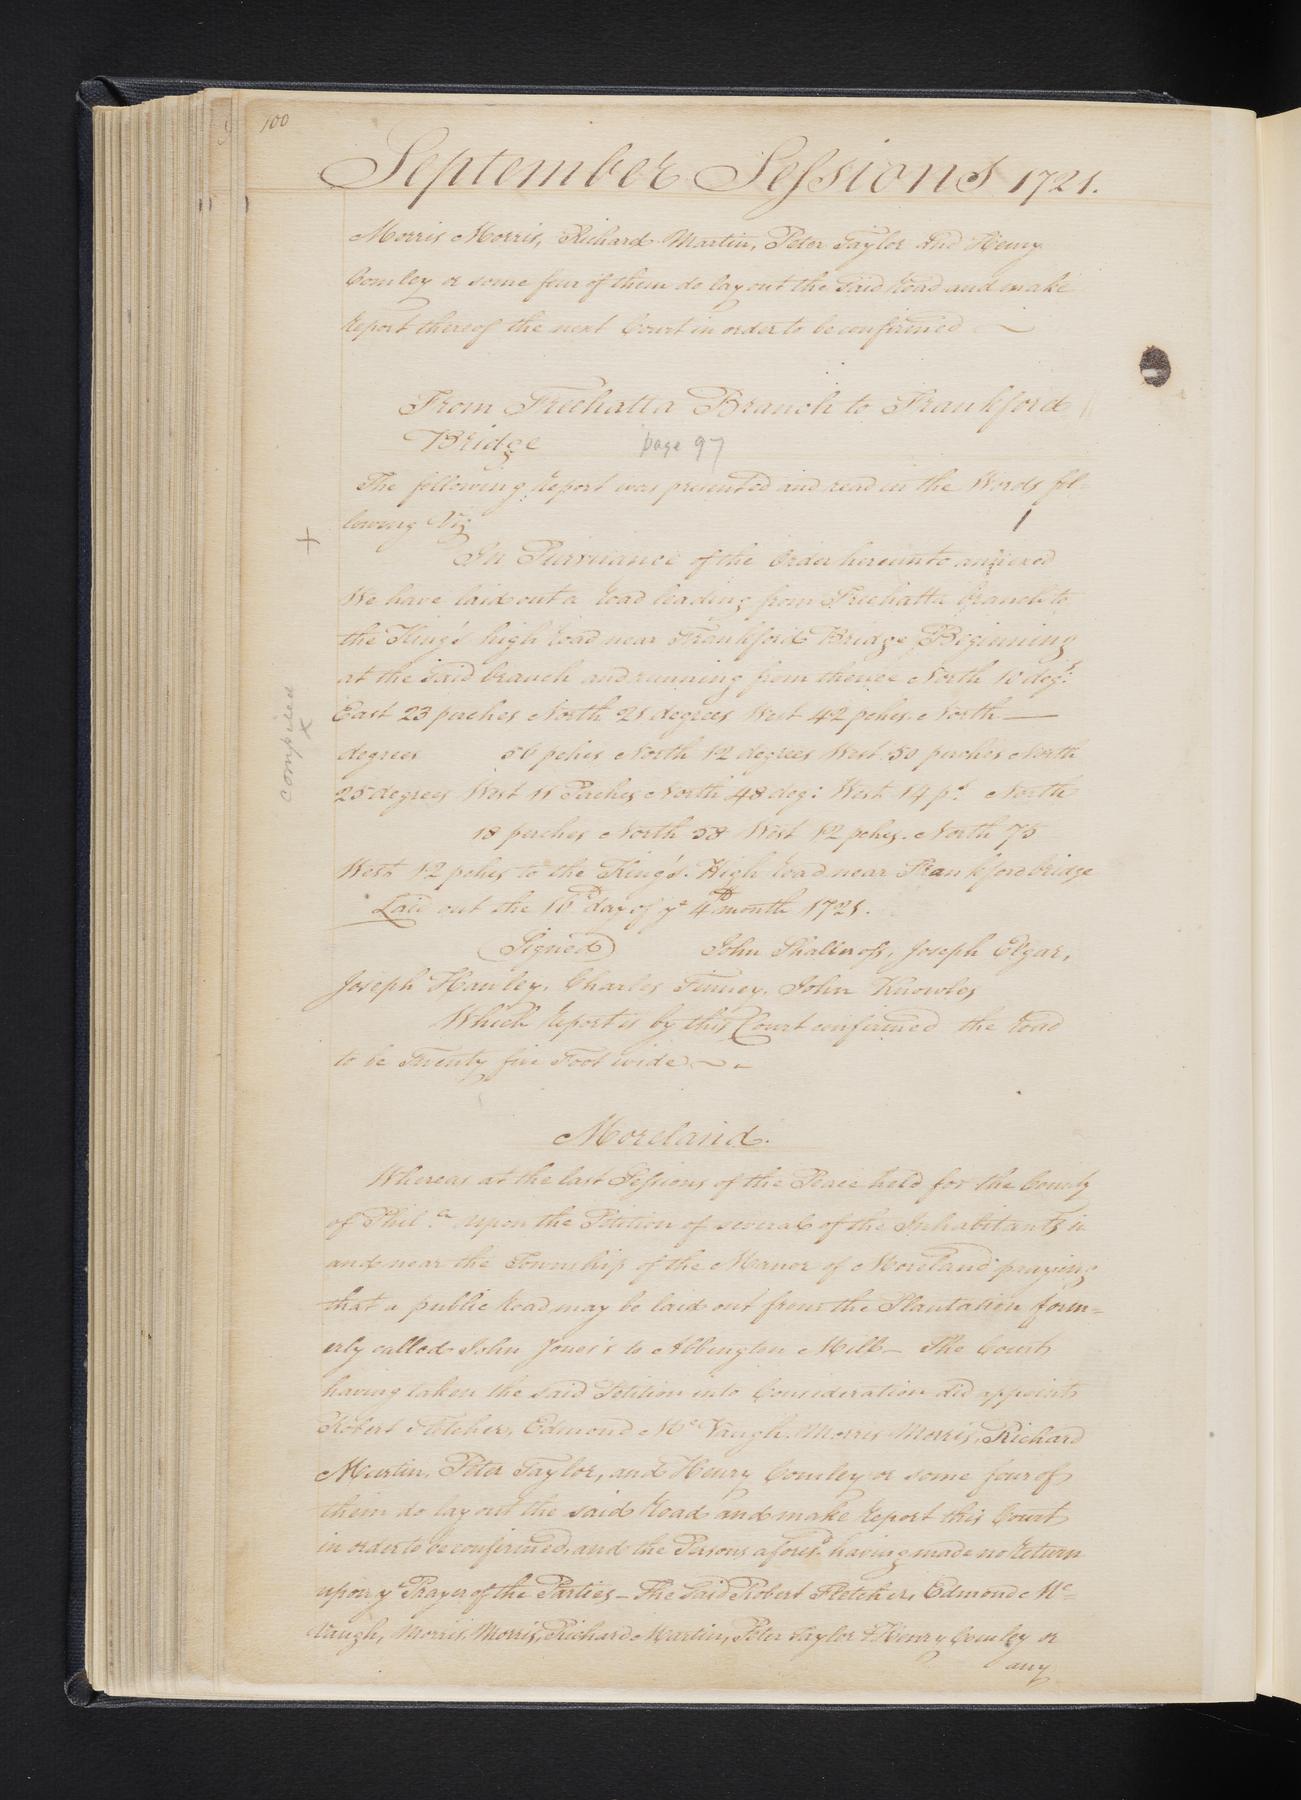 100
September Sessions 1721.
Morris Morris, Richard Martin, Peter Taylor and Henry
Comley or some four of them do lay out the said Road and make
Report thereof the next Court in order to be confirmed
From Trechatta Branch to Frankford
Bridge page 97
The following Report was presented and read in the Words fol=
lowing Viz
+
In Pursuance of the Order hereunto annexed
We have laid out a Road leading from Trechatta branch to
the King's high Road near Frankford Bridge Beginning
at the said branch and running from thence North 10 deg.s
East 23 perches North 21 degrees West 42 pches. North —
degrees 56 pches North 12 degrees West 50 perches North
25 degrees West 11 Perches North 48 deg: West 14 p.s North
18 perches North 58 West 12 pches. North 75
West 12 pches to the King's High Road near Frankford bridge
Laid out the 16.th day of ye 4th month 1721.
(Signed) John Shallcross, Joseph Elgar,
Joseph Hawley, Charles Finney, John Knowles
Which Report is by this Court confirmed the Road
to be Twenty five Foot wide
compiled
x
Moreland.
Whereas at the last Sessions of the Peace held for the County
of Phil.a upon the Petition of several of the Inhabitants in
and near the Township of the Manor of Moreland praying
that a public Road may be laid out from the Plantation form=
erly called John Jones's to Abbington Mill — The Court
having taken the said Petition into Consideration did appoint
Robert Fletcher, Edmond Mc Vaugh, Morris Morris, Richard
Martin, Peter Taylor, and Henry Comley or some four of
them do lay out the said Road and make Report this Court
in order to be confirmed, and the Persons afores.d having made no Return
upon ye Prayer of the Parties — The Said Robert Fletcher, Edmond Mc=
Vaugh, Morris Morris, Richard Martin, Peter Taylor & Henry Comley or
any